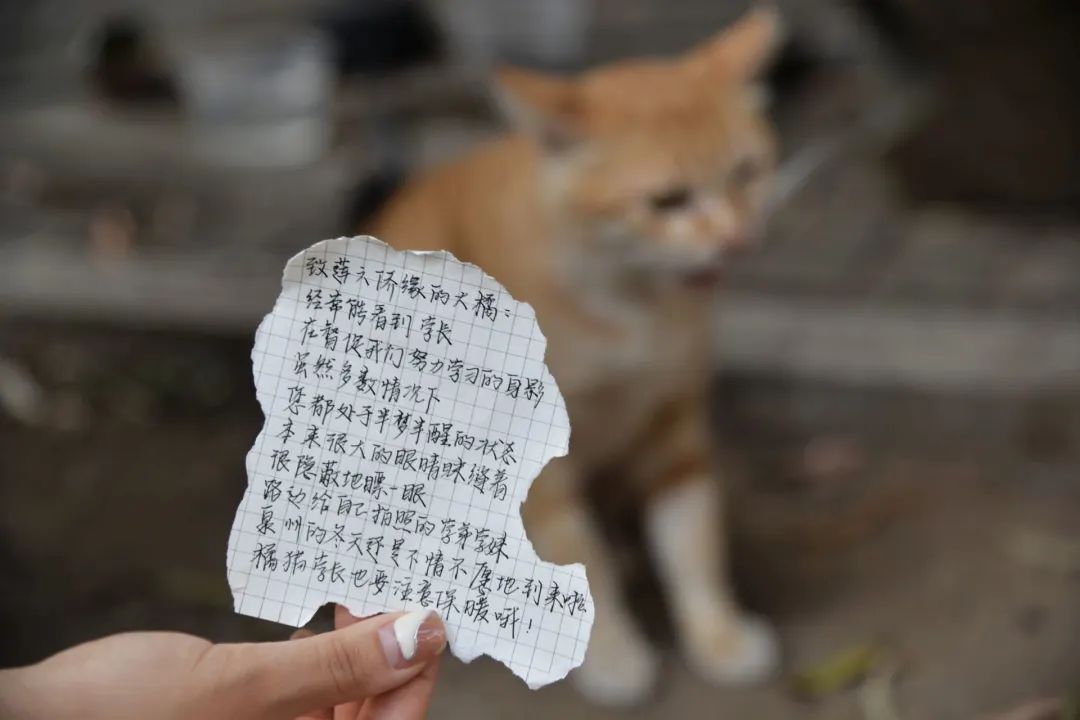 致莲天桥缘的大橘：
经幸能看到学长
在督促我们努力学习的身影
虽然多数情况下
您都处于半梦半醒的状态
本来很大的眼睛眯缝着
很隐蔽地瞟一眼
路边给自己拍照的学弟学妹
泉州的冬天还是不情不愿地到来啦
橘猫学长也要注意保暖哦！